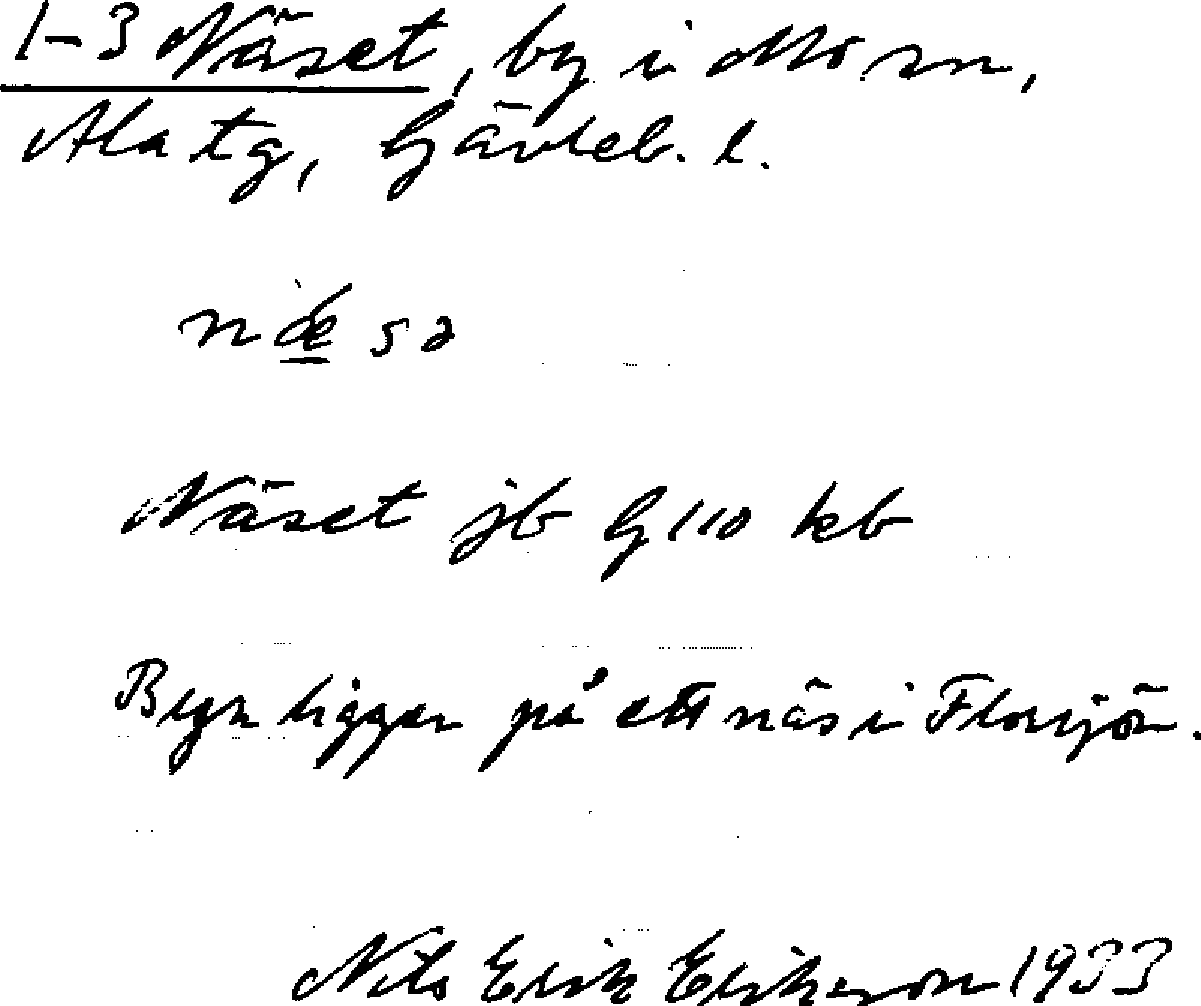 1-3 Näset, by i Mo sn,
Ala tg, Gävleb. l.
næ̀sə
Näset jb G110 kb
Byn ligger på ett näs i Florsjön.
Nils Erik Eriksson 1933